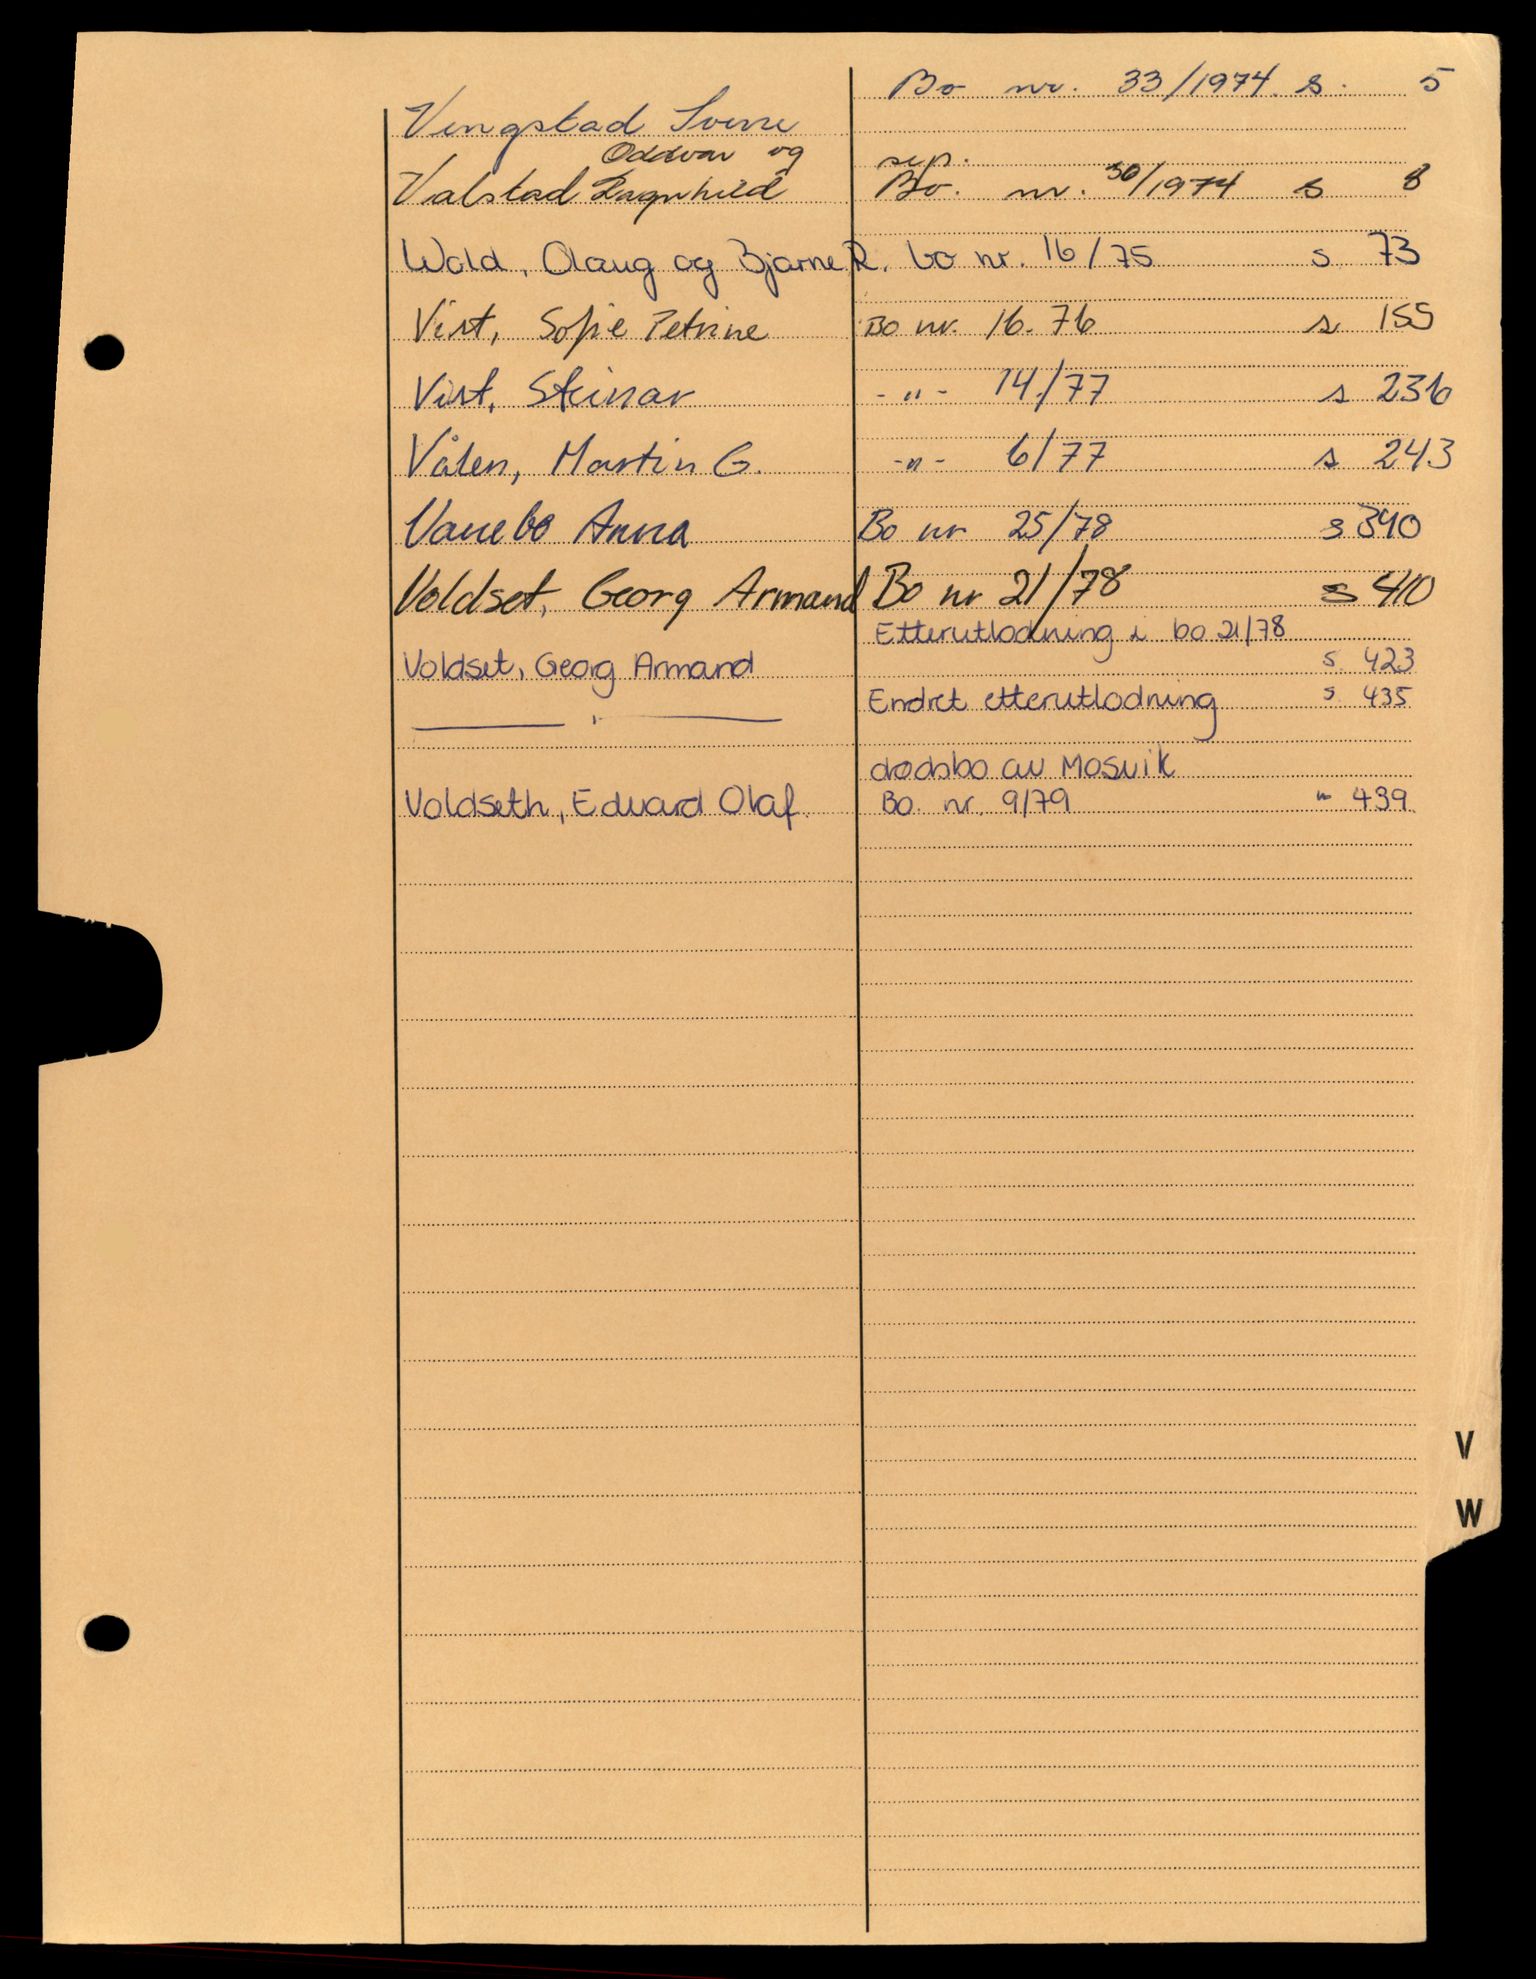 Bo nr. 33/1974. s. 5
Vingstad Sverre
Oddvar og sep.
Valstad Ragnhild Bo. nr. 30/1974 s 8
Wold, Olaug og Bjarne R. bo nr. 16/75 s. 73
Vist, Sofie Petrine Bo nr. 16.76 s 155
Vist, Steinar -"- 14/77 s 236
Vålen, Martin G. -"- 6/77 s 243
Vanebo Anna Bo nr 25/78 s 340
Voldset, Georg Armand Bo nr 21/78 s 410
Etterutlodning i bo 21/78
Voldset, Georg Armand s. 423
— " — Endret etterutlodning s. 435
dødsbo av Mosvik
Voldseth, Edvard Olaf. Bo. nr. 9/79 " 439
V
W